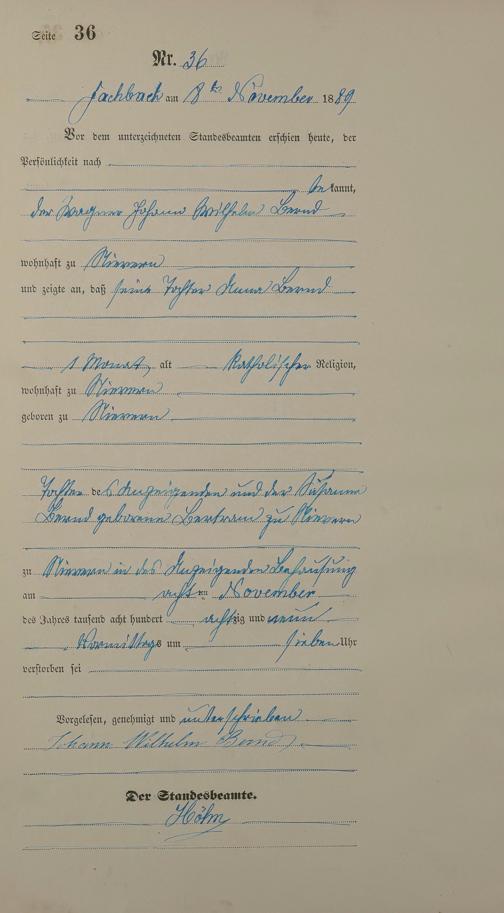 Seite 36
Nr. 36
Fachbach am 8ten November 1889
Vor dem unterzeichneten Standesbeamten erschien heute, der
Persönlichkeit nach
bekannt,
der Wagner Johann Wilhelm Bernd
wohnhaft zu Nievern
und zeigte an, daß seine Tochter Anna Bernd
1 Monat, alt katholischer Religion,
wohnhaft zu Nievern
geboren zu Nievern
Tochter des Anzeigenden und der Susanna
Bernd geborene Bertram zu Nievern
zu Nievern in des Anzeigenden Behausung
am achten November
des Jahres tausend acht hundert achtzig und neun
Vormittags um sieben Uhr
verstorben sei
Vorgelesen, genehmigt und unterschrieben
Johann Wilhelm Bernd
Der Standesbeamte.
Höhn